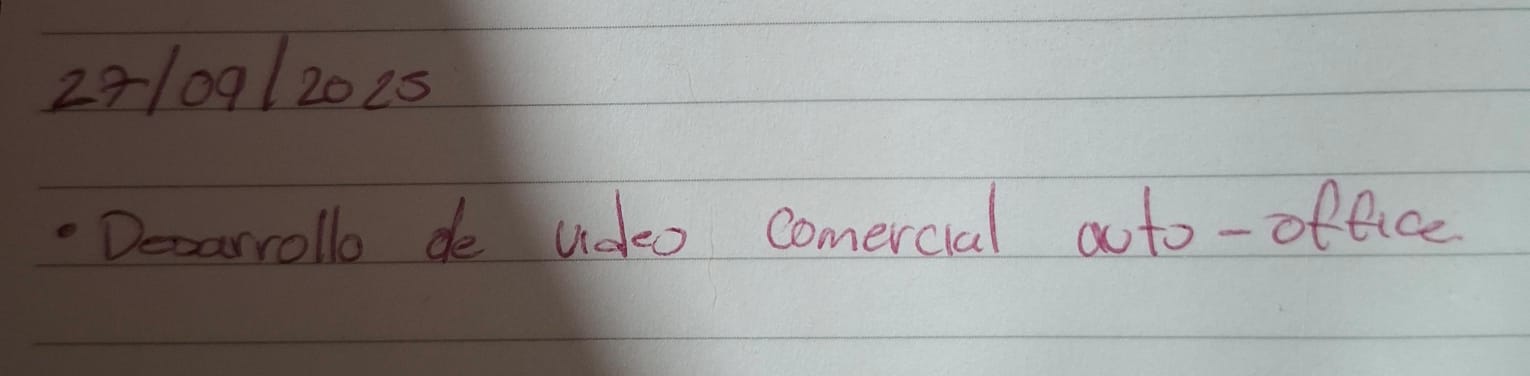 27/09/2025
• Desarrollo de video comercial auto-office